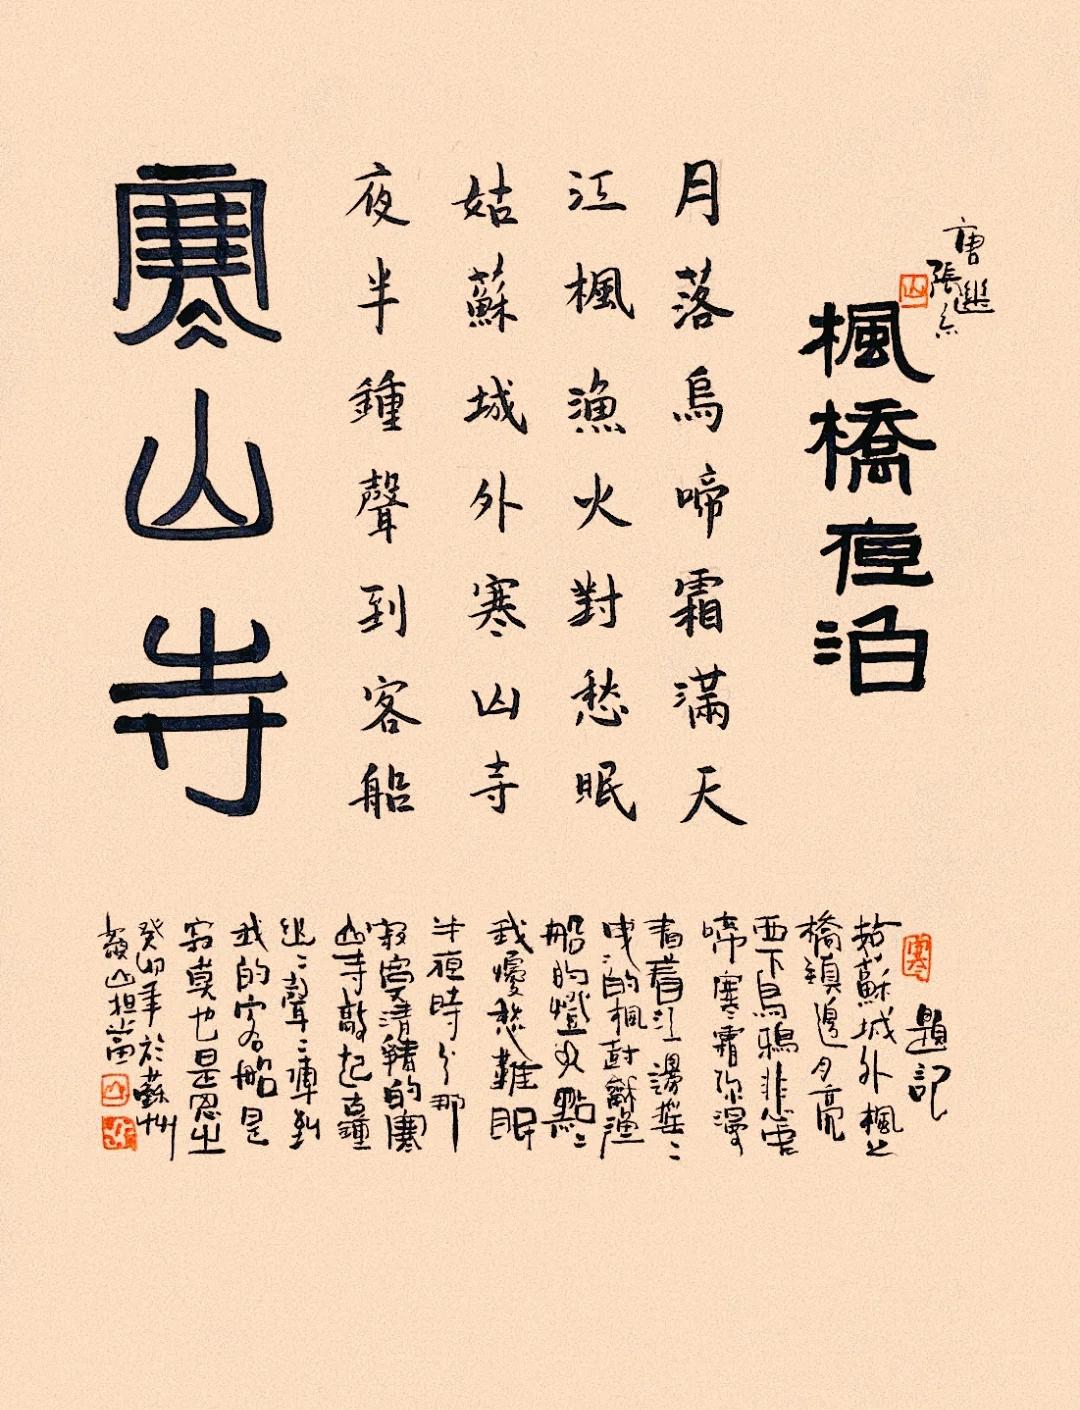 楓橋夜泊
唐張繼
月落烏啼霜滿天
江楓漁火對愁眠
姑蘇城外寒山寺
夜半鐘聲到客船
寒山寺
題記
姑蘇城外楓
橋鎮邊月亮
西下烏鴉悲
啼寒霜弥漫
看着江邊
的楓樹漁
船的燈火點點
我憂愁難眠
半夜時分那
寂寞清的寒
山寺敲起古鐘
聲聲到
我的客船是
寂寞也是
癸卯年於蘇州
山